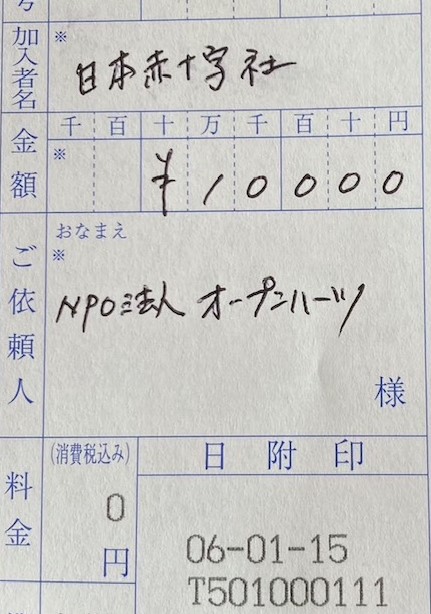 加入者名
※
日本赤十字社
金額
千 百 十 万 千 百 十 円
※
¥10000
ご依頼人
おなまえ
※
NPO法人 オープンハーツ
様
料金
(消費税込み)
0
円
日附印
06-01-15
T501000111